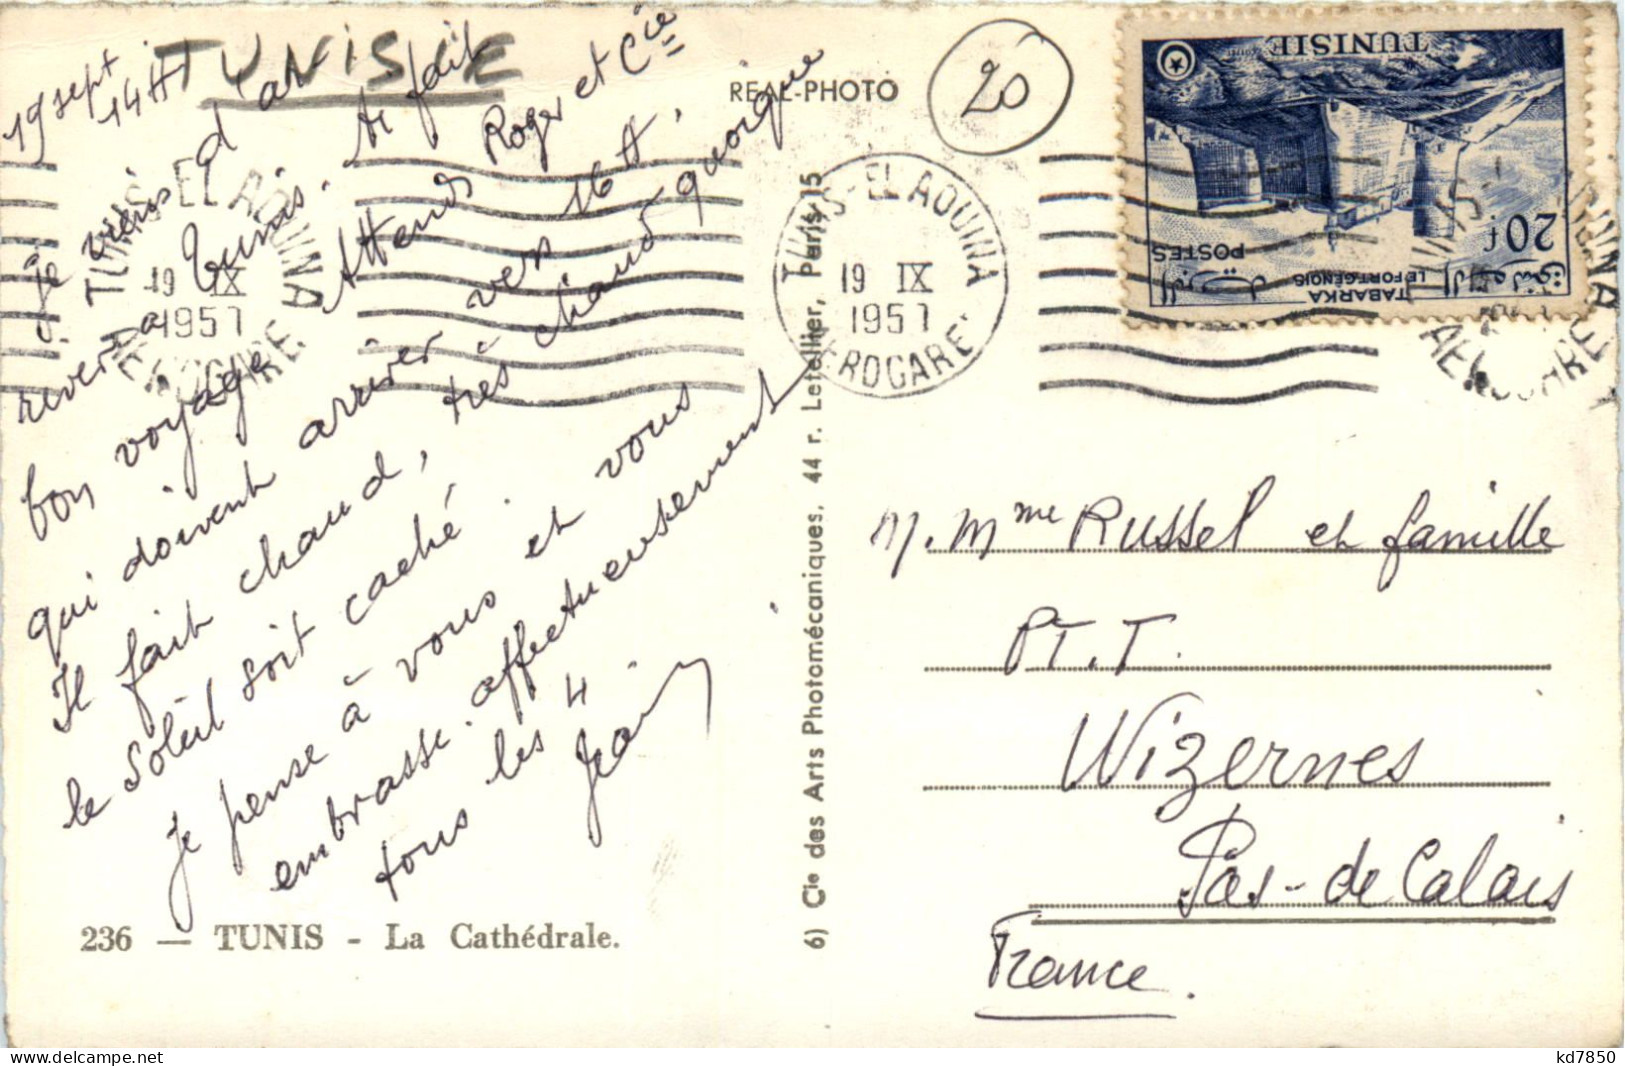 TUNISIE
19 sept
14H
Je viens d'arr
river à Tunis. Ai fait
bon voyage Attends Roger et Cie
qui doivent arriver vers 16 H.
Il fait chaud, très chaud quoique
le Soleil soit caché.
Je pense à vous et vous
embrasse affectueusement
tous les 4
Jean
236 — TUNIS - La Cathédrale.
REAL-PHOTO
20
6) Cie des Arts Photomécaniques, 44 r. Letellier, Paris-15
TUNIS-EL AOUINA
19 IX
1957
AEROGARE
TUNIS-EL AOUINA
19 IX
1957
AEROGARE
TUNISIE
20f
POSTES
TABARKA
LE FORT GENOIS
البريد التونسي
M. Mme Russel et famille
P.T.T.
Wizernes
Pas-de Calais
France.
kd7850